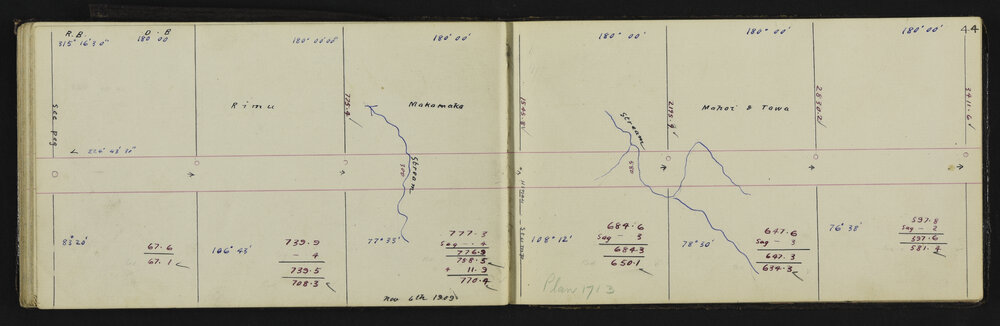 R.B D.B
315° 16' 30" 180 00'
180° 00' 00"
180° 00'
See peg
Rimu
775.4'
Makomako
Stream
500
L 226° 43' 30"
83° 20'
67.6
67.1
106° 43'
739.9
- 4
739.5
708.3
77° 35'
777.3
Sag - .4
776.9
758.5
+ 11.9
770.4
Nov 6th 1909
44
180° 00'
180° 00'
180° 00'
1545.8'
Stream
550
2195.9'
Mahoe & Towa
2830.2'
3411.6'
108° 12'
684.6
Sag - 3
684.3
650.1
78° 30'
647.6
Sag - 3
647.3
634.3
76° 38'
597.8
Sag - 2
597.6
581.4
Plan 1713